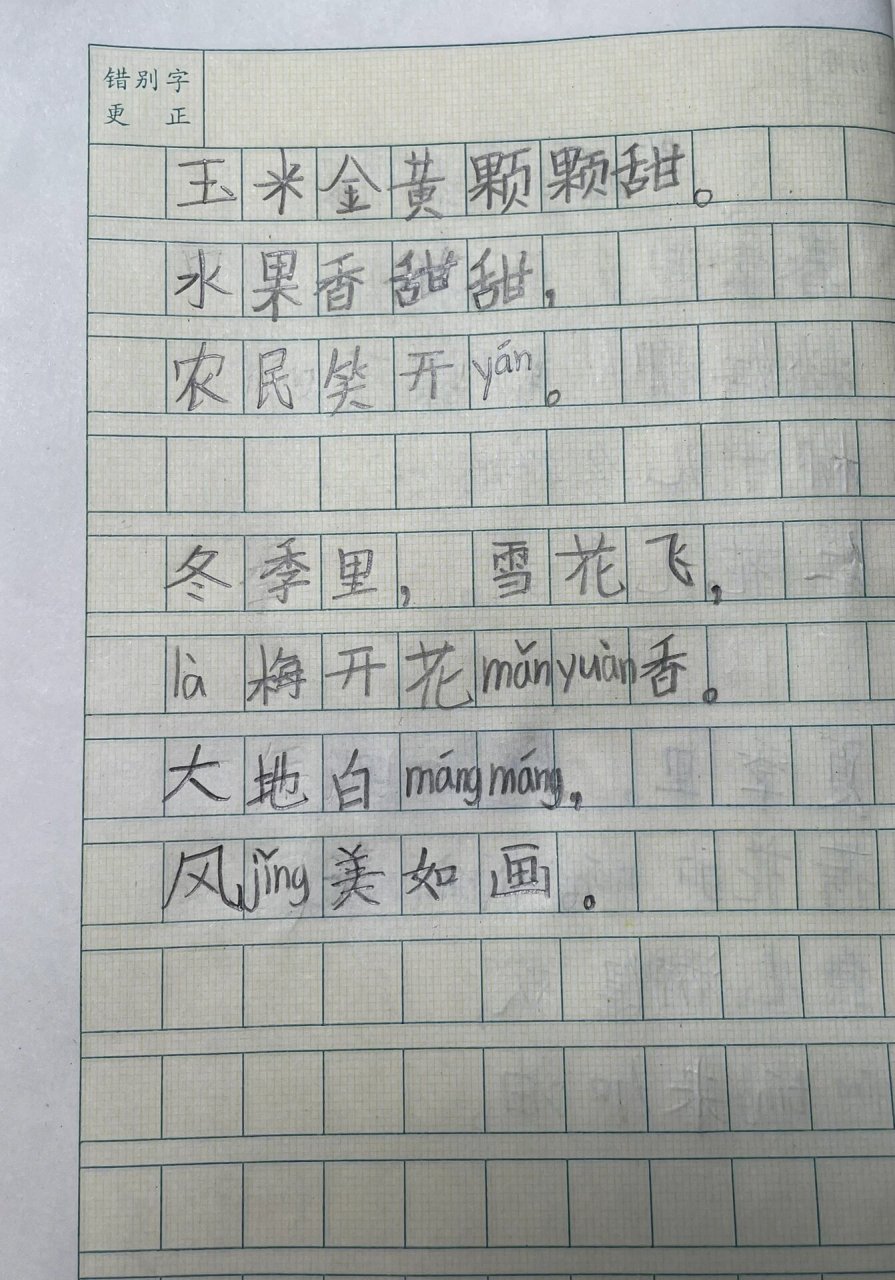 错别字
更正
玉米金黄颗颗甜。
水果香甜甜，
农民笑开yán。
冬季里，雪花飞，
là梅开花mǎnyuàn香。
大地白mángmáng，
风jǐng美如画。